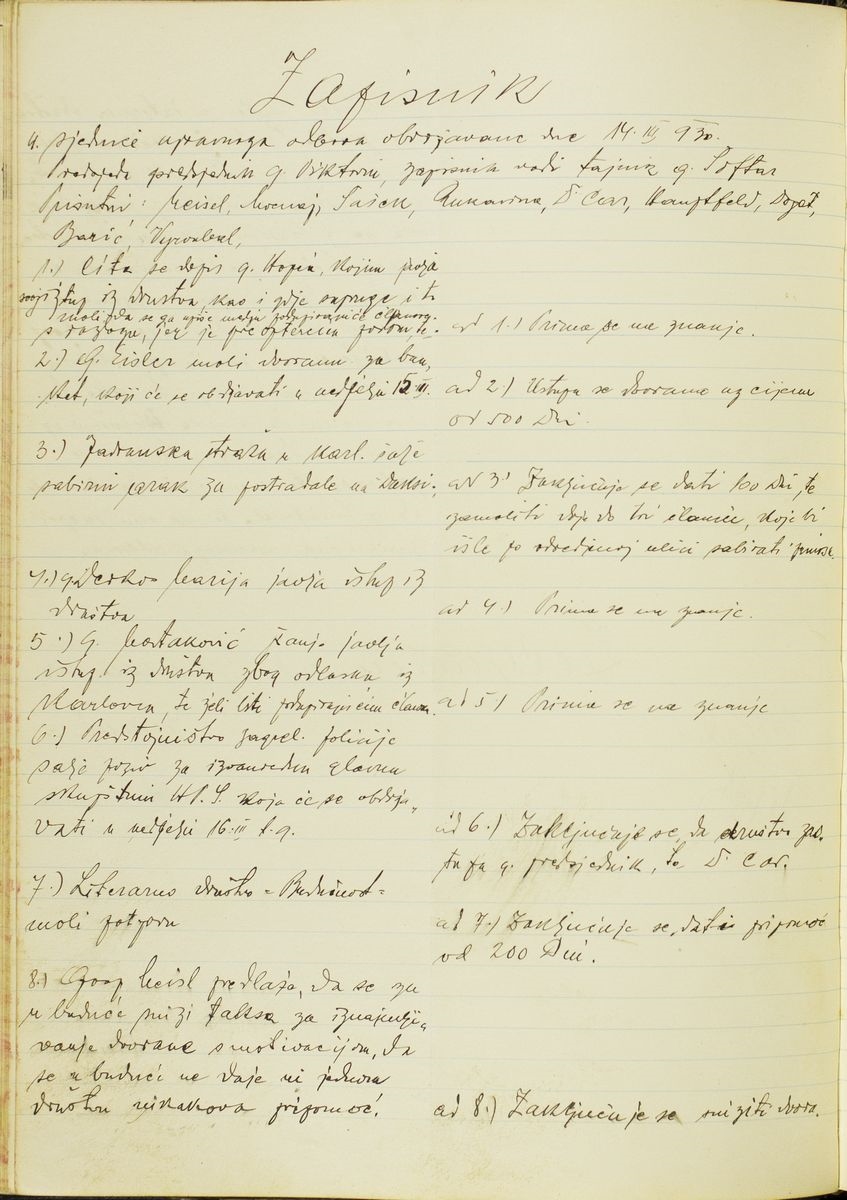 Zapisnik
4. sjednice upravnoga odbora obdržavane dne 14. III 930.
Predsjeda predsjednik g. zapisnik vodi tajnik g. Šoštar
Prisutni: Meisel, Sašek, Dr Car, Hauptfeld,
Barić,
1.) Čita se dopis g. kojim javlja
svoj istup iz društva kao i gdje supruge i to
moli da se ga upiše medju podupirajuće članove.
s razloga, jer je preopterećen
ad 1.) Prima se na znanje.
2.) G. Eisler moli dvoranu za ban„
ket, koji će se obdržavati u nedjelju 15 III.
ad 2.) Ustupa se dvorana uz cijenu
od 500 Din.
3.) Jadranska straža u Karl. šalje
sabirni arak za postradale na Daksi.
ad 3) Zaključuje se dati 100 Din, te
zamoliti dvije do tri članice, koje bi
išle po odredjenoj ulici sabirati
4.) g. Marija javlja istup iz
društva
ad 4.) Prima se na znanje.
5.) G. javlja
istup iz društva zbog odlaska iz
Karlovca, te želi biti podupirajućim članom.
ad 5) Prima se na znanje
6.) Predstojništvo zagreb. policije
šalje poziv za izvanrednu glavnu
skupštinu H. P. S. koja će se obdrža„
vati u nedjelju 16. III t. g.
ad 6.) Zaključuje se, da društvo zas„
tupa g. predsjednik, te Dr Car.
7.) Literarno društvo "Budućnost"
moli potporu
ad 7.) Zaključuje se, dati pripomoć
od 200 Din.
8.) Gosp Meisl predlaže, da se za
u buduće snizi taksa za iznajmlji„
vanje dvorane s motivacijom, da
se u buduće ne daje ni jednom
društvu nikakova pripomoć.
ad 8.) Zaključuje se sniziti dvora.